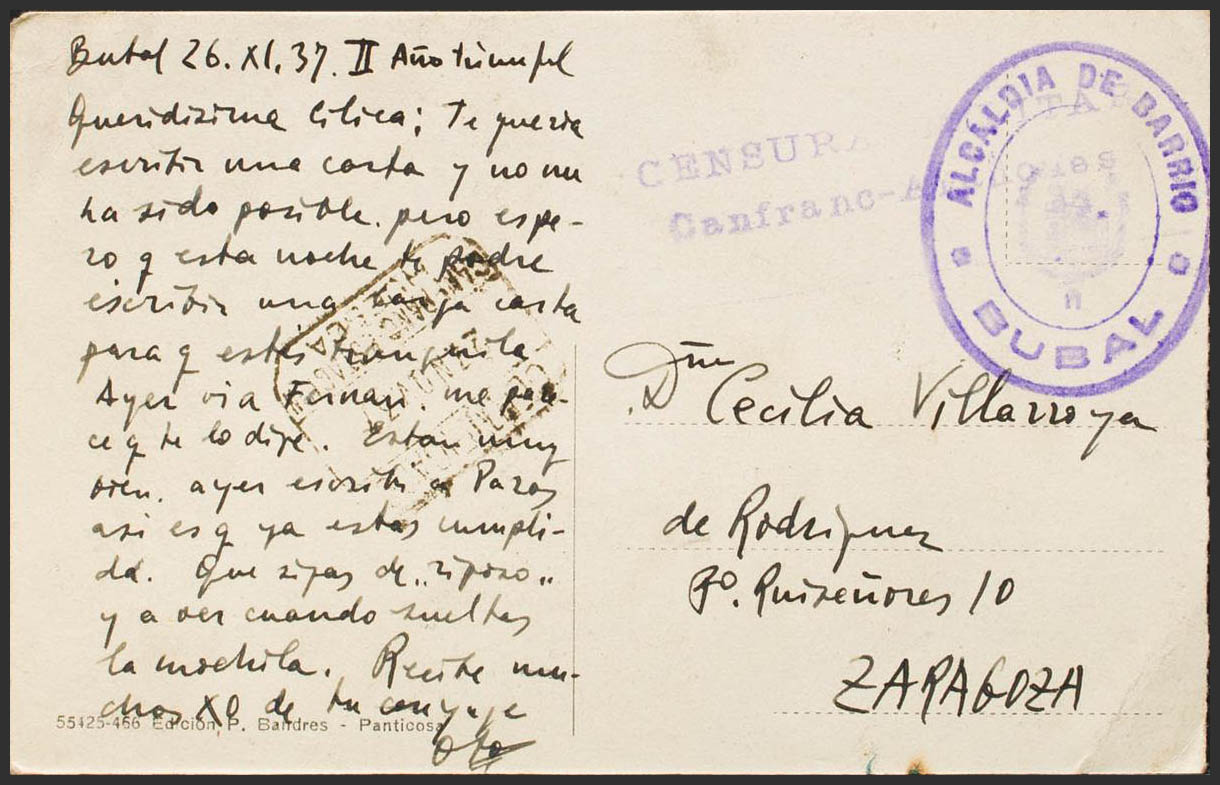 Bubal 26. XI. 37. II Año triunfal
Queridisima Cilica; Te queria
escribir una carta y no me
ha sido posible. pero espe-
ro q esta noche te podre
escribir una larga carta
para q estés tranquila
Ayer via Fernan. me pare-
ce q te lo dije. Estan muy
bien. ayer escribi a
asi es q ya estas cumpli-
da. Que sigas de „riposo„
y a ver cuando sueltas
la mochila. Recibe mu-
chos XO de tu conyuge
55425-466 Edición, P. Bandres - Panticosa
CENSURA MILITAR
Canfranc-Arañones
ALCALDIA DE BARRIO
BUBAL
Dña
Cecilia Villarroya
de Rodriguez
Pº. Ruiseñores 10
ZARAGOZA